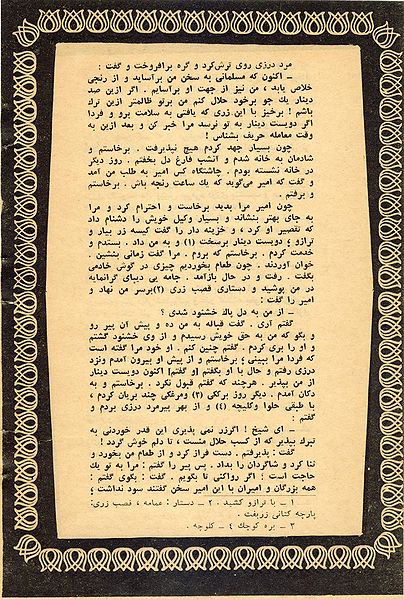 مرد درزی روی ترش‌کرد و گره برافروخت و گفت :
ـ اکنون که مسلمانی به سخن من برآساید و از رنجی
خلاص یابد ، من نیز از جهت او برآسایم . اگر ازین صد
دینار یك جو برخود حلال کنم من برتو ظالمتر ازین ترك
باشم ! برخیز با این‌زری که یافتی به سلامت برو و فردا
اگر دویست دینار به تو نرسد مرا خبر کن و بعد ازین به
وقت معامله حریف بشناس !
چون بسیار جهد کردم هیچ نپذیرفت . برخاستم و
شادمان به خانه شدم و آنشب فارغ دل بخفتم . روز دیگر
در خانه نشسته بودم . چاشتگاه کس امیر به طلب من آمد
و گفت که امیر می‌گوید که یك ساعت رنجه باش . برخاستم
و برفتم .
چون امیر مرا بدید برخاست و احترام کرد و مرا
به جای بهتر بنشاند و بسیار وکیل خویش را دشنام داد
که تقصیر او کرد ، و خزینه دار را گفت کیسه زر بیار و
ترازو ؛ دویست دینار برسخت (۱) و به من داد . بستدم و
خدمت کردم . برخاستم که بروم . مرا گفت زمانی بنشین .
خوان آوردند . چون طعام بخوردیم چیزی در گوش خادمی
بگفت . رفت و در حال بازآمد . جامه بی دیبای گرانمایه
در من پوشید و دستاری قصب زری (۲)برسر من نهاد و
امیر را گفت :
ـ از من به دل پاك خشنود شدی ؟
گفتم آری . گفت قباله به من ده و پیش آن پیر رو
و بگو که من به حق خویش رسیدم و از وی خشنود گشتم
و او را بری کردم . گفتم چنین کنم . او خود مرا گفته است
که فردا مرا ببینی ؛ برخاستم و از پیش او بیرون آمدم ونزد
درزی رفتم و حال با او بگفتم او گفتم؛ اکنون دویست دینار
از من بپذیر . هرچند که گفتم قبول نکرد . برخاستم و به
دکان آمدم . دیگر روز برکی (۳) ومرغکی چند بریان کردم ،
با طبقی حلوا وکلیچه (۴) و از بهر پیرمرد درزی بردم و
گفتم :
ـ ای شیخ ! اگرزر نمی پذیری این قدر خوردنی به
تبرك بپذیر که از کسب حلال منست ، تا دلم خوش گردد !
گفت : پذیرفتم . دست فراز کرد و از طعام من بخورد و
ثنا کرد و شاگردان را بداد . پس پیر را گفتم : مرا به تو یك
حاجت است ؛ اگر رواکنی تا بگویم . گفت : بگوی گفتم :
همه بزرگان و امیران با این امیر سخن گفتند سود نداشت ؛
۱ ـ با ترازو کشید . ۲ ـ دستار : عمامه ، قصب زری:
پارچه کتانی زربفت .
۳ ـ بره کوچك ۴ ـ کلوچه .